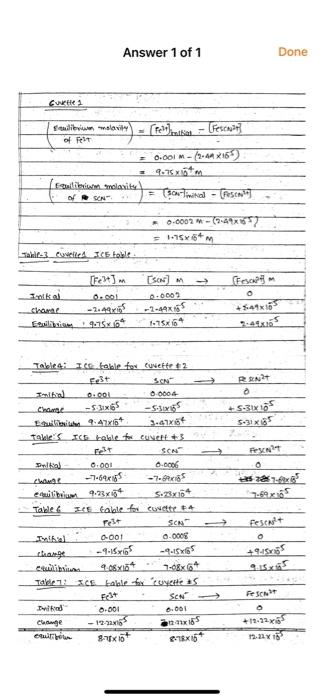 Answer 1 of 1 Done
Cuvette 1
(Equilibrium molarity of Fe3+) = [Fe3+]initial - [FeSCN2+]
= 0.001 M - (2.49 x 10^-5)
= 9.75 x 10^-4 M
(Equilibrium molarity of SCN-) = [SCN-]initial - [FeSCN2+]
= 0.0002 M - (2.49 x 10^-5)
= 1.75 x 10^-4 M
Table-3 cuvette 1 ICE table.
[Fe3+] M [SCN-] M → [FeSCN2+] M
Initial 0.001 0.0002 0
change -2.49x10^-5 -2.49x10^-5 +2.49x10^-5
Equilibrium 9.75x10^-4 1.75x10^-4 2.49x10^-5
Table 4: ICE table for cuvette #2
Fe3+ SCN- →
Initial 0.001 0.0004 0
change -5.31x10^-5 -5.31x10^-5 +5.31x10^-5
Equilibrium 9.47x10^-4 3.47x10^-4 5.31x10^-5
Table 5 ICE table for cuvett #3
Fe3+ SCN- → FeSCN2+
Initial 0.001 0.0006 0
change -7.69x10^-5 -7.69x10^-5 7.69x10^-5
equilibrium 9.23x10^-4 5.23x10^-4 7.69x10^-5
Table 6 ICE table for cuvette #4
Fe3+ SCN- → FeSCN2+
Initial 0.001 0.0008 0
change -9.15x10^-5 -9.15x10^-5 +9.15x10^-5
equilibrium 9.08x10^-4 7.08x10^-4 9.15x10^-5
Table 7: ICE table for cuvette #5
Fe3+ SCN- → FeSCN2+
Initial 0.001 0.001 0
change -12.22x10^-5 -12.22x10^-5 +12.22x10^-5
equilibrium 8.78x10^-4 8.78x10^-4 12.22x10^-5